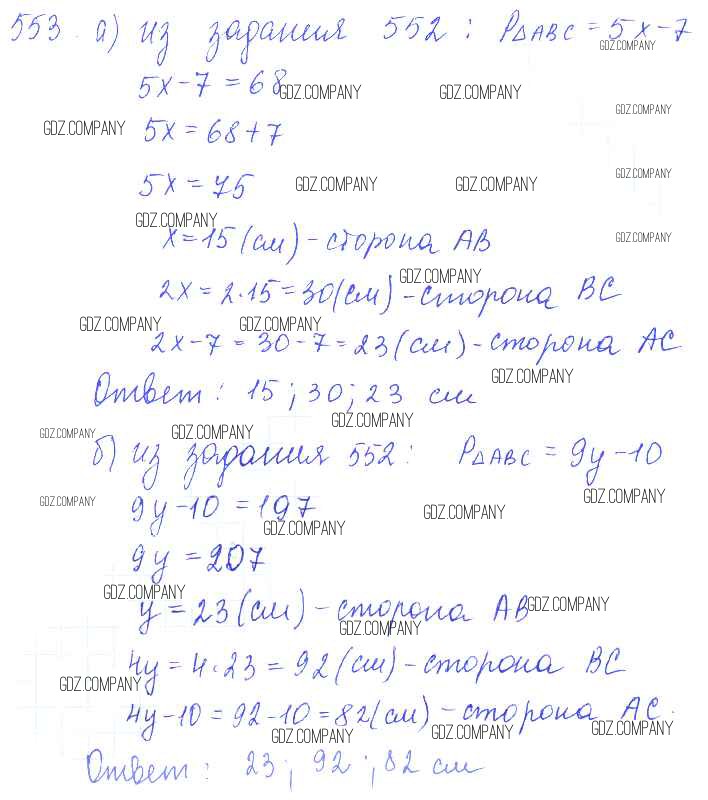 553. а) из задания 552: P△ABC = 5x-7
5x-7 = 68
5x = 68+7
5x = 75
x=15 (см) - сторона AB
2x = 2·15=30(см) - сторона BC
2x-7 = 30-7=23 (см) - сторона AC
Ответ: 15; 30; 23 см
б) из задания 552: P△ABC = 9y-10
9y-10 = 197
9y = 207
y = 23 (см) - сторона AB
4y = 4·23 = 92 (см) - сторона BC
4y-10 = 92-10 = 82(см) - сторона AC.
Ответ: 23; 92; 82 см
GDZ.COMPANY
GDZ.COMPANY GDZ.COMPANY
GDZ.COMPANY
GDZ.COMPANY
GDZ.COMPANY GDZ.COMPANY GDZ.COMPANY
GDZ.COMPANY
GDZ.COMPANY
GDZ.COMPANY
GDZ.COMPANY GDZ.COMPANY
GDZ.COMPANY
GDZ.COMPANY
GDZ.COMPANY GDZ.COMPANY
GDZ.COMPANY GDZ.COMPANY
GDZ.COMPANY GDZ.COMPANY
GDZ.COMPANY GDZ.COMPANY
GDZ.COMPANY
GDZ.COMPANY
GDZ.COMPANY GDZ.COMPANY GDZ.COMPANY